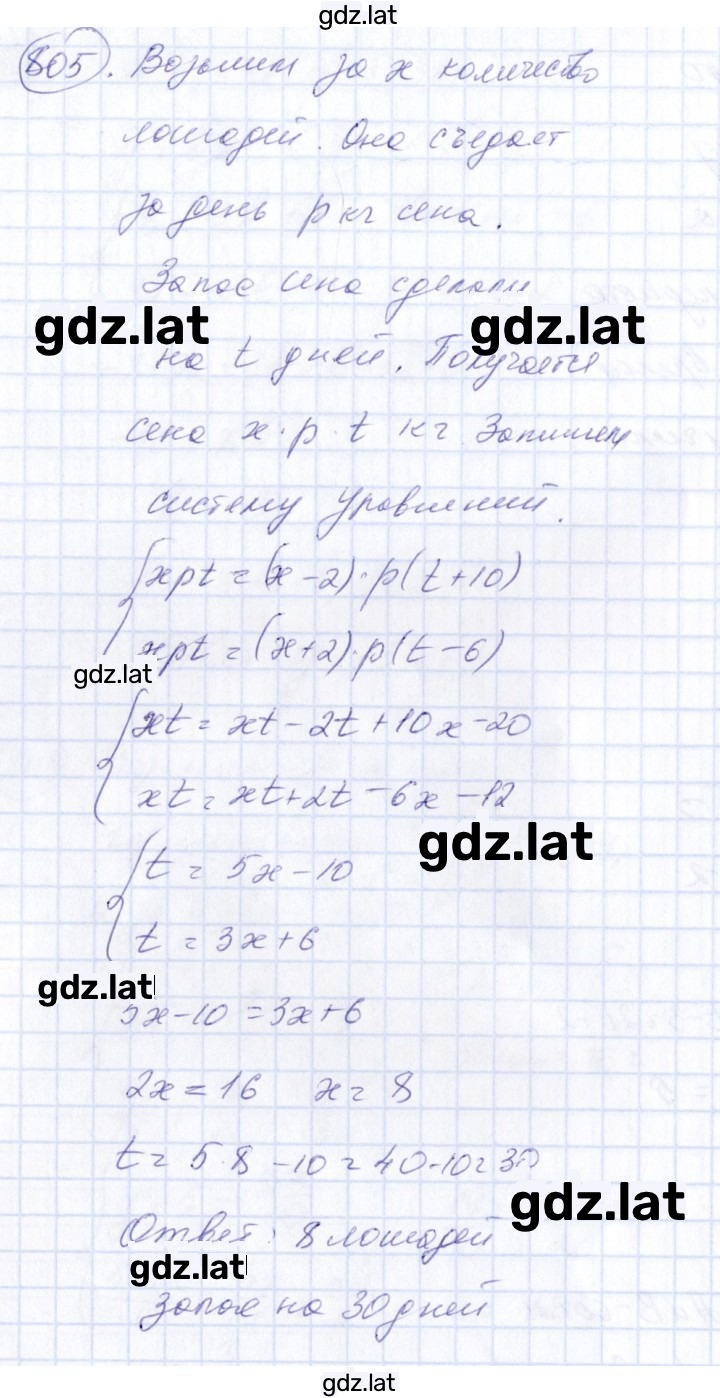 gdz.lat
805. Возьмим за x количество
лошадей. Она съедает
за день p кг сена.
Запас сена сделали
gdz.lat gdz.lat
на t дней. Получается
сена x·p·t кг. Запишем
систему уравнений.
xpt = (x-2)·p(t+10)
xpt = (x+2)·p(t-6)
gdz.lat
xt = xt - 2t + 10x - 20
xt = xt + 2t - 6x - 12
gdz.lat
t = 5x - 10
t = 3x + 6
gdz.lat
5x - 10 = 3x + 6
2x = 16 x = 8
t = 5·8 - 10 = 40 - 10 = 30
gdz.lat
Ответ: 8 лошадей
gdz.lat
запас на 30 дней
gdz.lat